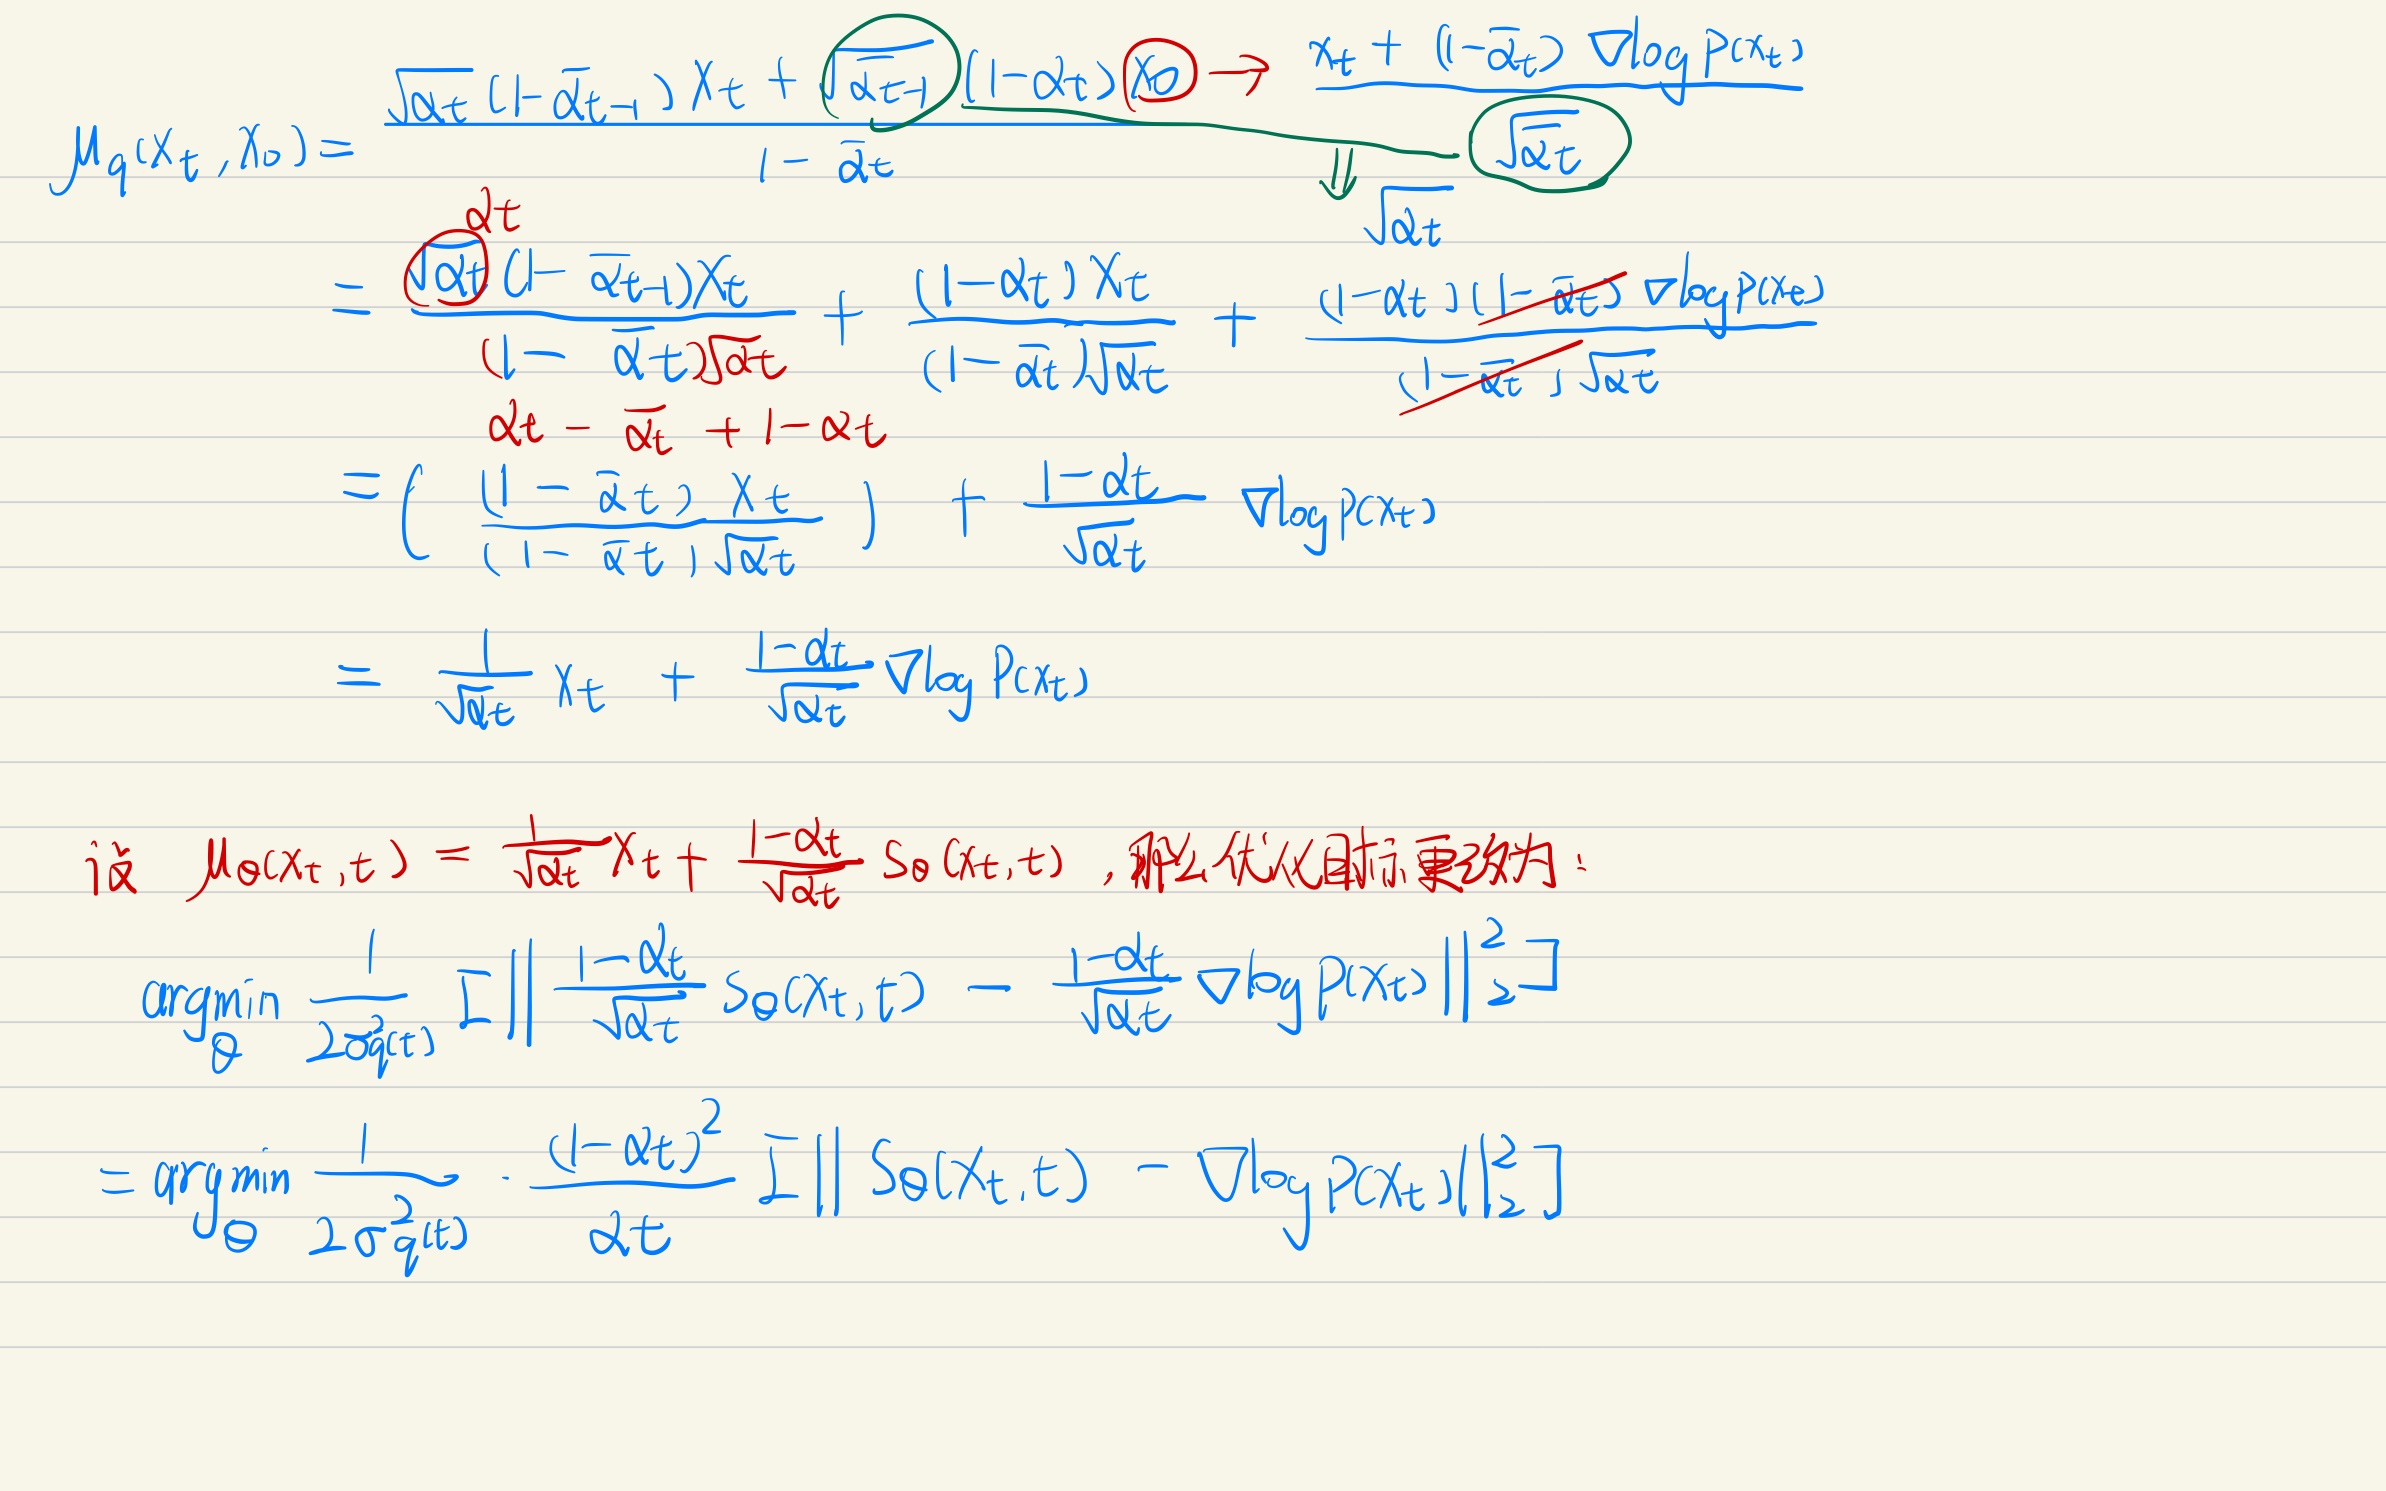 μ_q(x_t, x_0) = \frac{\sqrt{α_t}(1-\bar{α}_{t-1})x_t + \sqrt{\bar{α}_{t-1}}(1-α_t)x_0}{1-\bar{α}_t} → \frac{x_t + (1-\bar{α}_t)∇log p(x_t)}{\sqrt{\bar{α}_t}}
α_t ⇓ \sqrt{α_t}
= \frac{\sqrt{α_t}(1-\bar{α}_{t-1})x_t}{(1-\bar{α}_t)\sqrt{α_t}} + \frac{(1-α_t)x_t}{(1-\bar{α}_t)\sqrt{α_t}} + \frac{(1-α_t)(1-\bar{α}_t)∇log p(x_t)}{(1-\bar{α}_t)\sqrt{α_t}}
α_t - \bar{α}_t + 1-α_t
= ( \frac{(1-\bar{α}_t)x_t}{(1-\bar{α}_t)\sqrt{α_t}} ) + \frac{1-α_t}{\sqrt{α_t}} ∇log p(x_t)
= \frac{1}{\sqrt{α_t}} x_t + \frac{1-α_t}{\sqrt{α_t}} ∇log p(x_t)
设 μ_θ(x_t, t) = \frac{1}{\sqrt{α_t}} x_t + \frac{1-α_t}{\sqrt{α_t}} s_θ(x_t, t) , 那么优化目标更改为:
argmin_θ \frac{1}{2σ_q^2(t)} [‖ \frac{1-α_t}{\sqrt{α_t}} s_θ(x_t, t) - \frac{1-α_t}{\sqrt{α_t}} ∇log p(x_t) ‖_2^2]
= argmin_θ \frac{1}{2σ_q^2(t)} · \frac{(1-α_t)^2}{α_t} [‖ s_θ(x_t, t) - ∇log p(x_t) ‖_2^2]